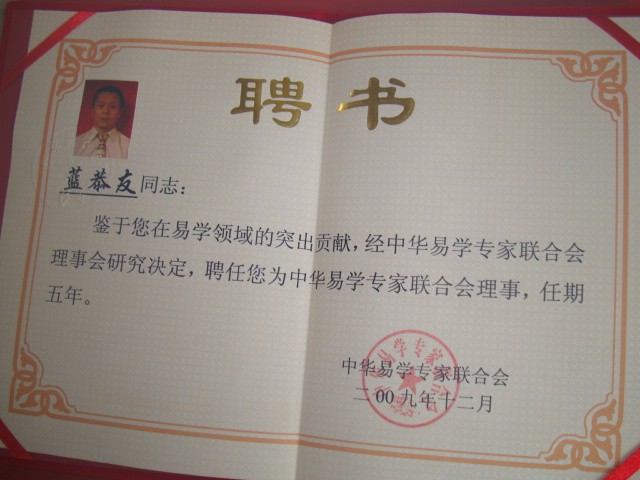 聘书
蓝恭友同志：
鉴于您在易学领域的突出贡献，经中华易学专家联合会
理事会研究决定，聘任您为中华易学专家联合会理事，任期
五年。
中华易学专家联合会
二00九年十二月